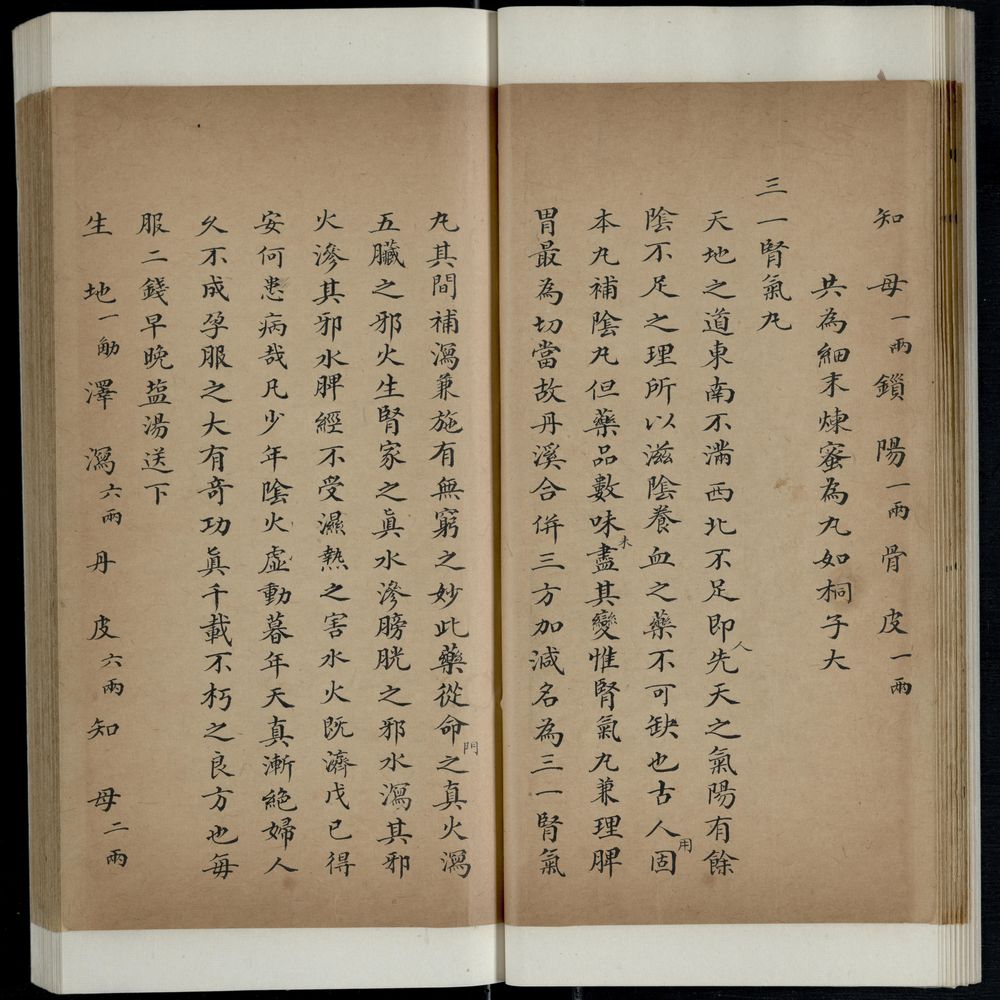 知母一兩鎖陽一兩骨皮一兩
共為細末煉蜜為丸如桐子大
三一腎氣丸
天地之道東南不滿西北不足即人先天之氣陽有餘
陰不足之理所以滋陰養血之藥不可缺也古人用固
本丸補陰丸但藥品數味未盡其變惟腎氣丸兼理脾
胃最為切當故丹溪合併三方加減名為三一腎氣
丸其間補瀉兼施有無窮之妙此藥從命門之真火瀉
五臟之邪火生腎家之眞水滲膀胱之邪水瀉其邪
火滲其邪水脾經不受濕熱之害水火既濟戊已得
安何患病哉凡少年陰火虛動暮年天真漸絕婦人
久不成孕服之大有奇功眞千載不朽之良方也每
服二錢早晚塩湯送下
生地一觔澤瀉六兩丹皮六兩知母二兩